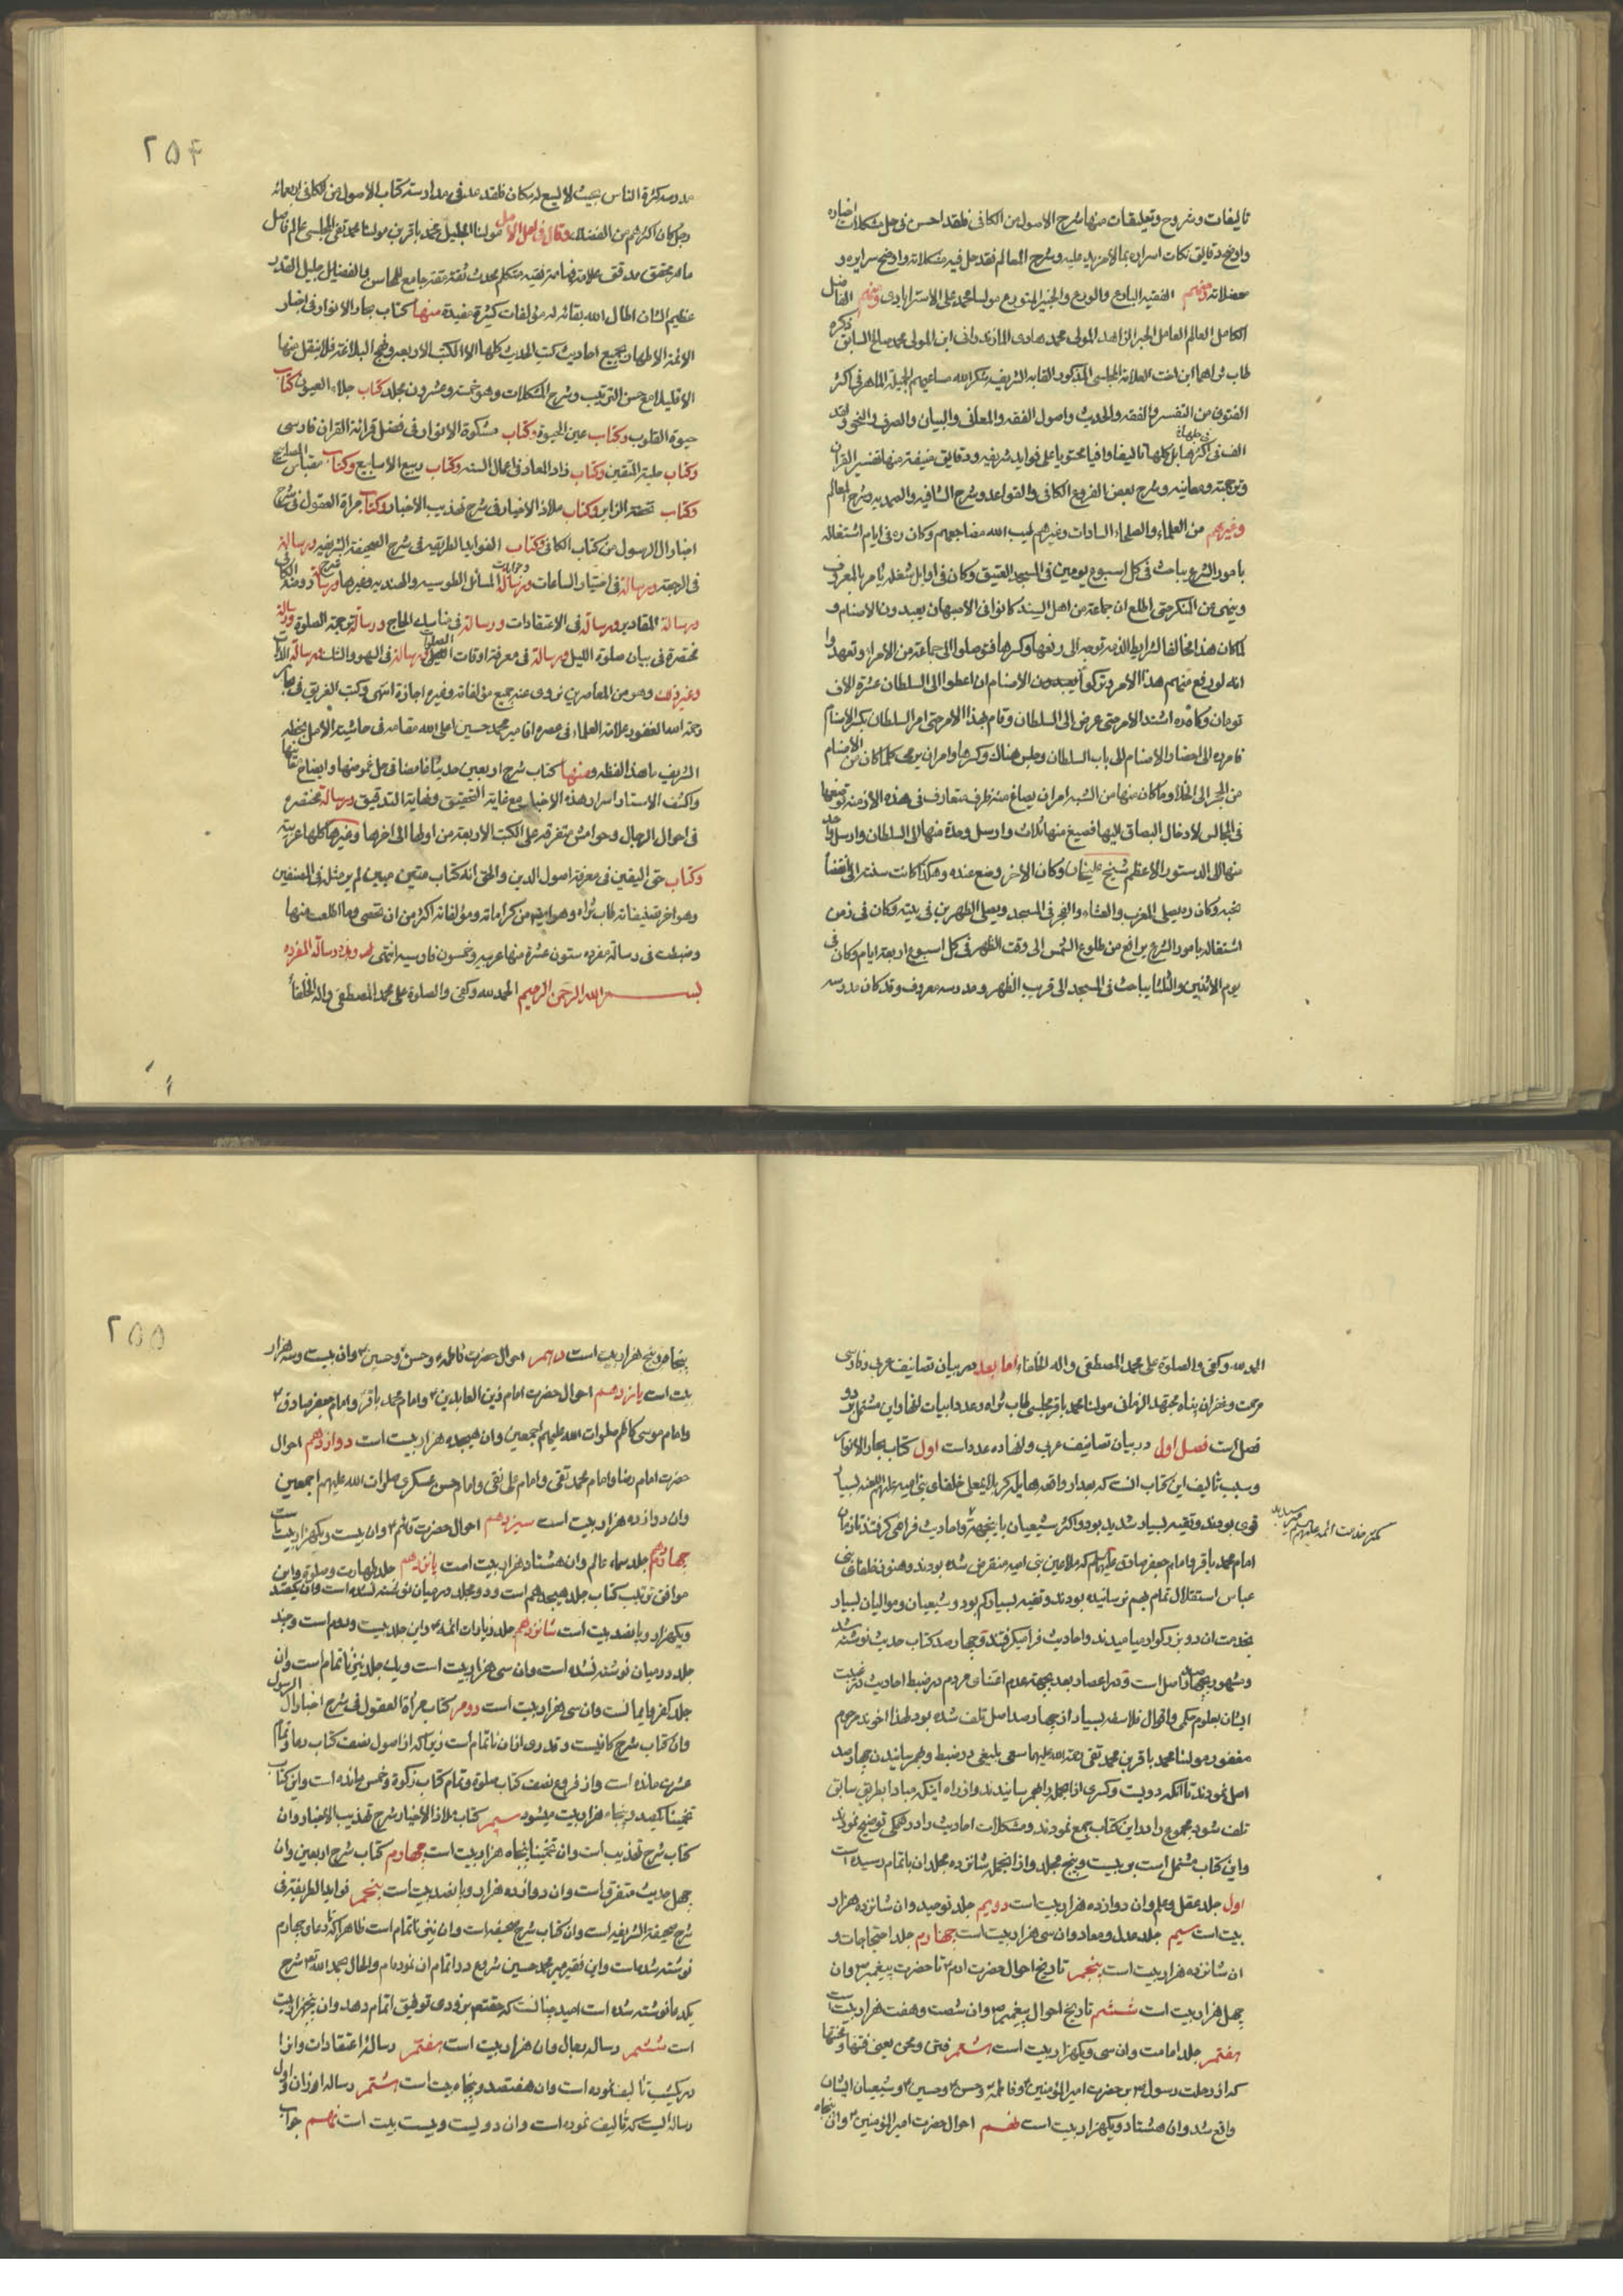 تالیفات و شروح و تعلیقات منها شرح الاصول من الکافی فلقد احسن فی حل مشکلات اخباره
و اوضح دقایق نکات اسراره بما لا مزید علیه و شرح المعالم فقد حل فیه مشکلاته و اوضح سرایره و
معضلاته ومنهم الفقیه البارع والورع والحبر المتورع مولینا محمد علی الاسترابادی ومنهم الفاضل
الکامل العالم العامل الحبر الزاهد المولی محمد هادی المازندرانی ابن المولی محمد صالح السابق ذکره
طاب ثراهما ابن اخت العلامة المجلسی المذکور القابه الشریف شکر الله مساعیهم الجمیلة الماهر فی اکثر
الفنون من التفسیر والفقه والحدیث واصول الفقه والمعانی والبیان والصرف والنحو ولقد
الف فی اکثرها بل کلها تالیفا وافیا محتویا علی فواید شریفه و دقایق منیفة منها تفسیر القران
و ترجمته و معانیه و شرح بعض الفروع الکافی والقواعد و شرح الشافیه والصمدیه و شرح المعالم
وغیرهم من العلماء والصلحاء السادات وغیرهم طیب الله مضاجعهم وکان ره فی ایام اشتغاله
بامور الشرع یباحث فی کل اسبوع یومین فی المسجد العتیق وکان فی اوایل شغله یامر بالمعروف
وینهی عن المنکر حتی اطلع ان جماعة من اهل السند کانوا فی الاصبهان یعبدون الاصنام و
لما کان هذا مخالفا لشرایط الذمه توجه الی رفعها وکسرها فتوصلوا الی جماعة من الامراء وتعهدوا
انه لو رفع عنهم هذا الامر وترکوا یعبدون الاصنام ان اعطوا الی السلطان عشرة الاف
تومان وکان ره اشتد الامر حتی عرض الی السلطان وقام لهذا الامر حتی امر السلطان بکسر الاصنام
فامر ره الی احضار الاصنام الی باب السلطان وجلس هناک وکسرها وامر ان یرمی کلما کان من الاصنام
من الحجر الی الخلا وما کان منها من الشبه امر ان یصاغ منه ظرف متعارف فی هذه الازمنة توضعها
فی المجالس لادخال البصاق الیها فصیغ منها ثلاث وارسل واحدة منها الی السلطان وارسل واحد
منها الی الدستور الاعظم شیخ علیخان وکان الاخر وضع عنده وهکذا کانت سنته الی انقضا
نحبه وکان ره یصلی المغرب والعشاء والفجر فی المسجد ویصلی الظهرین فی بیته وکان فی زمن
اشتغاله بامور الشرع یرافع من طلوع الشمس الی وقت الظهر فی کل اسبوع اربعة ایام وکان فی
یوم الاثنین والثلثا یباحث فی المسجد الی قریب الظهر ومدرسه معروف وقد کان مدرسه
۲۵۴
مدرسه کثرة الناس بحیث لا یسع له مکان فلقد عد فی مدارسته کتاب الاصول من الکافی اربعمائه
رجل کان اکثرهم من الفضلاء وقال فی امل الامل مولینا الجلیل محمد باقر بن مولینا محمد تقی المجلسی عالم فاضل
ماهر محقق مدقق علامة فهامة فقیه متکلم محدث ثقة ثقة جامع للمحاسن والفضایل جلیل القدر
عظیم الشان اطال الله بقائه له مؤلفات کثیرة مفیدة منها کتاب بحار الانوار فی اخبار
الائمة الاطهار یجمع احادیث کتب الحدیث کلها الا الکتب الاربعه ونهج البلاغة فلا ینقل منها
الا قلیلا مع حسن الترتیب وشرح المشکلات وهو خمسة وعشرون مجلد کتاب جلاء العیون کتاب
حیوة القلوب وکتاب عین الحیوة وکتاب مشکوة الانوار فی فضل قرائة القران فارسی
وکتاب حلیة المتقین وکتاب زاد المعاد فی اعمال السنه وکتاب ربیع الاسابیع وکتاب مقباس المصابیح
وکتاب تحفة الزایر وکتاب ملاذ الاخیار فی شرح تهذیب الاخبار وکتاب مراة العقول فی شرح
اخبار ال الرسول من کتاب الکافی وکتاب الفواید الطریفه فی شرح الصحیفة الشریفه ورسالة
فی الرجعة ورسالة فی اختیار الساعات ورسالة وجوابات المسائل الطوسیه والهندیه وغیرها ورسالة شرح روضة الکافی
ورسالة المقادیر ورسالة فی الاعتقادات ورسالة فی مناسک الحاج ورسالة ترجمة الصلوة ورسالة
مختصرة فی بیان صلوة اللیل ورسالة فی معرفة اوقات الصلوات ورسالة فی السهو والشک ورسالة
وغیر ذلک وهو من المعاصرین نروی عنه جمیع مؤلفاته وغیره اجازة انتهی وکتب الغریق فی بحار
رحمة الله الغفور علامة العلماء فی عصره اقا میر محمد حسین اعلی الله مقامه فی حاشیته الامل بخطه
الشریف ما هذا لفظه ومنها کتاب شرح اربعین حدیثا غامضا فی حل غموضها وایضاح
واکشف الاستار اسرار هذه الاخبار مع غایة التحقیق ونهایة التدقیق ورسالة مختصره
فی احوال الرجال وحواش متفرقه علی الکتب الاربعة من اولها الی اخرها وغیرها کلها عربیة
وکتاب حق الیقین فی معرفة اصول الدین والحق انه کتاب متین مبین لم یر مثله فی المصنفین
وهو اخر تصنیفاته طاب ثراه وهو ایضا من کراماته ومؤلفاته اکثر من ان تحصی وما اطلعت منها
وضبطت فی رسالة مفرده ستون عشرة منها عربیه وخمسون فارسیه انتهی وهذه رسالة المفرده
بسم الله الرحمن الرحیم الحمد لله وکفی والصلوة علی محمد المصطفی واله الخلفا
الحمد لله وکفی والصلوة علی محمد المصطفی واله الخلفاء اما بعد در بیان تصانیف عربی و فارسی
مرحمت و غفران پناه مجتهد الزمانی مولینا محمد باقر مجلسی طاب ثراه و عدد ابیات انها و این مشتمل بر دو
فصل است فصل اول در بیان تصانیف عربی و انها ده عدد است اول کتاب بحار الانوار
و سبب تالیف این کتاب انست که بعد از واقعه هایله کربلای معلی خلفای بنی امیه علیهم اللعنه بسیار
قوی بودند و تقیه بسیار شدید بود و اکثر شیعیان باین جهت واحادیث فرا می گرفتند تا زمان
کمتر بخدمت ائمه علیهم السلام میرسیدند
امام محمد باقر و امام جعفر صادق علیهما السلام که ملاعین بنی امیه منقرض شده بودند و هنوز خلفای بنی
عباس استقلال تمام بهم نرسانیده بودند و تقیه بسیار کم بود و شیعیان و موالیان بسیار
بخدمت ان دو بزرگوار می امیدند و احادیث فرا میگرفتند و چهار صد کتاب حدیث نوشته شد
و مشهور بچهار صد اصل است و در اعصار بعد بجهة عدم اعتنای مردم در ضبط احادیث و رغبت
ایشان بعلوم حکمی و اقوال فلاسفه بسیار از چهار صد اصل تلف شده بود لهذا اخوند مرحوم
مغفور مولینا محمد باقر بن محمد تقی رحمة الله علیهما سعی بلیغی در ضبط و بهم رسانیدن چهار صد
اصل نمودند تا انکه دویست و کسری از انجمله را بهم رسانیدند و از راه اینکه مبادا بطریق سابق
تلف شود مجموع را در این کتاب جمع نمودند و مشکلات احادیث را در همگی توضیح نمودند
و این کتاب مشتمل است بر بیست و پنج مجلد و از انجمله شانزده مجلد ان باتمام رسیده است
اول جلد عقل و علم وان دوازده هزار بیت است دویم جلد توحید وان شانزده هزار
بیت است سیم جلد عدل و معاد وان سی هزار بیت است چهارم جلد احتجاجات و
ان شانزده هزار بیت است پنجم تاریخ احوال حضرت ادم تا حضرت پیغمبر وان
چهل هزار بیت است ششم تاریخ احوال پیغمبر وان شصت و هفت هزار بیت است
هفتم جلد امامت وان سی و یکهزار بیت است هشتم فتن و محن یعنی فتنها و محنتها
که از رحلت رسول بر حضرت امیر المؤمنین و فاطمه و حسن و حسین و شیعیان ایشان
واقع شد وان هشتاد و یکهزار بیت است نهم احوال حضرت امیر المؤمنین وان پنجاه
۲۵۵
پنجاه و پنج هزار بیت است دهم احوال حضرت فاطمه و حسن و حسین وان بیست و سه هزار
بیت است یازدهم احوال حضرت امام زین العابدین و امام محمد باقر و امام جعفر صادق
و امام موسی کاظم صلوات الله علیهم اجمعین وان هیجده هزار بیت است دوازدهم احوال
حضرت امام رضا و امام محمد تقی و امام علی نقی و امام حسن عسکری صلوات الله علیهم اجمعین
وان دوازده هزار بیت است سیزدهم احوال حضرت قائم وان بیست و یکهزار بیت است
چهاردهم جلد سماء عالم وان هشتاد هزار بیت است پانزدهم جلد طهارت و صلوة و این
موافق ترتیب کتاب جلد هیجدهم است و دو مجلد در میان نوشته نشده است وان یکصد
و یکهزار و پانصد بیت است شانزدهم جلد زیارات ائمه و این جلد بیست و دوم است و چند
جلد در میان نوشته نشده است وان سی هزار بیت است و یک جلد نیز ناتمام است وان
جلد کفر و ایمانست وان سی هزار بیت است دوم کتاب مرآة العقول فی شرح اخبار ال الرسول
وان کتاب شرح کافیست و قدری از ان ناتمام است زیرا که از اصول نصف کتاب دعا و تمام
عشرت مانده است و از فروع نصف کتاب صلوة و تمام کتاب زکوة و خمس مانده است و این کتاب
تخمینا یکصد و پنجاه هزار بیت میشود سیم کتاب ملاذ الاخیار شرح تهذیب الاخبار وان
کتاب شرح تهذیب است وان تخمینا پنجاه هزار بیت است چهارم کتاب شرح اربعین وان
چهل حدیث متفرق است وان دوازده هزار و پانصد بیت است پنجم فواید الطریفه فی
شرح صحیفة الشریفه است وان کتاب شرح صحیفه است وان نیز ناتمام است ظاهرا که تا دعای چهارم
نوشته شده است و این فقیر میر محمد حسین شروع در اتمام ان نموده ام والحال بحمد الله شرح
یک دعا نوشته شده است امید چنانست که حقتعالی بزودی توفیق اتمام دهد وان پنجهزار بیت
است ششم رساله رجال وان هزار بیت است هفتم رسالة اعتقادات و انرا
در یکشب تالیف نموده است وان هفتصد و پنجاه بیت است هشتم رساله اوزان اول
رساله ایست که تألیف نموده است وان دویست و بیست بیت است نهم جواب